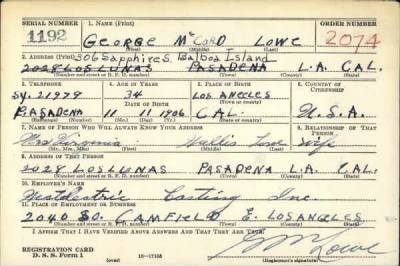 SERIAL NUMBER 1. NAME (Print) ORDER NUMBER
1192 GEORGE McCORD LOWE 2074
306 Sapphire S. Balboa Island
2. ADDRESS (Print)
2028 LOS LUNAS PASADENA L.A. CAL.
(Number and street or R. F. D. number) (Town) (County) (State)
3. TELEPHONE 4. AGE IN YEARS 5. PLACE OF BIRTH 6. COUNTRY OF CITIZENSHIP
Sy. 21979 34 LOS ANGELES
DATE OF BIRTH
PASADENA 11 11 1906 CAL. U.S.A.
(Exchange) (Number) (Mo.) (Day) (Yr.) (State or country)
7. NAME OF PERSON WHO WILL ALWAYS KNOW YOUR ADDRESS 8. RELATIONSHIP OF THAT PERSON
Mrs Virginia Lowe Wife
(Mr., Mrs., Miss) (First) (Middle) (Last)
9. ADDRESS OF THAT PERSON
2028 LOS LUNAS PASADENA L.A. CAL
(Number and street or R. F. D. number) (Town) (County) (State)
10. EMPLOYER'S NAME
Casting Inc.
11. PLACE OF EMPLOYMENT OR BUSINESS
2040 SO. CAMFIELD E. LOS ANGELES
(Number and street or R. F. D. number) (Town) (County) (State)
I AFFIRM THAT I HAVE VERIFIED ABOVE ANSWERS AND THAT THEY ARE TRUE.
REGISTRATION CARD
D. S. S. Form 1 (over) 16—17105 (Registrant's signature)
G M Lowe